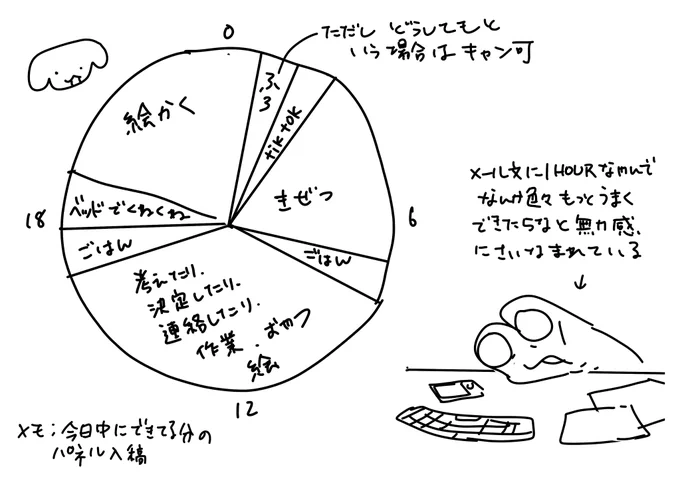 0
ただし どうしてもと
いう場合は キャン可
ふ
ろ
tiktok
絵かく
きぜつ
6
18
ベッドでくねくね
ごはん
ごはん
考えたり、
決定したり、
連絡したり、
作業、おやつ
絵
12
メール文に1HOURなやんで
なんか色々もっとうまく
できたらなと無力感、
にさいなまれている
メモ;今日中にできてる分の
パネル入稿